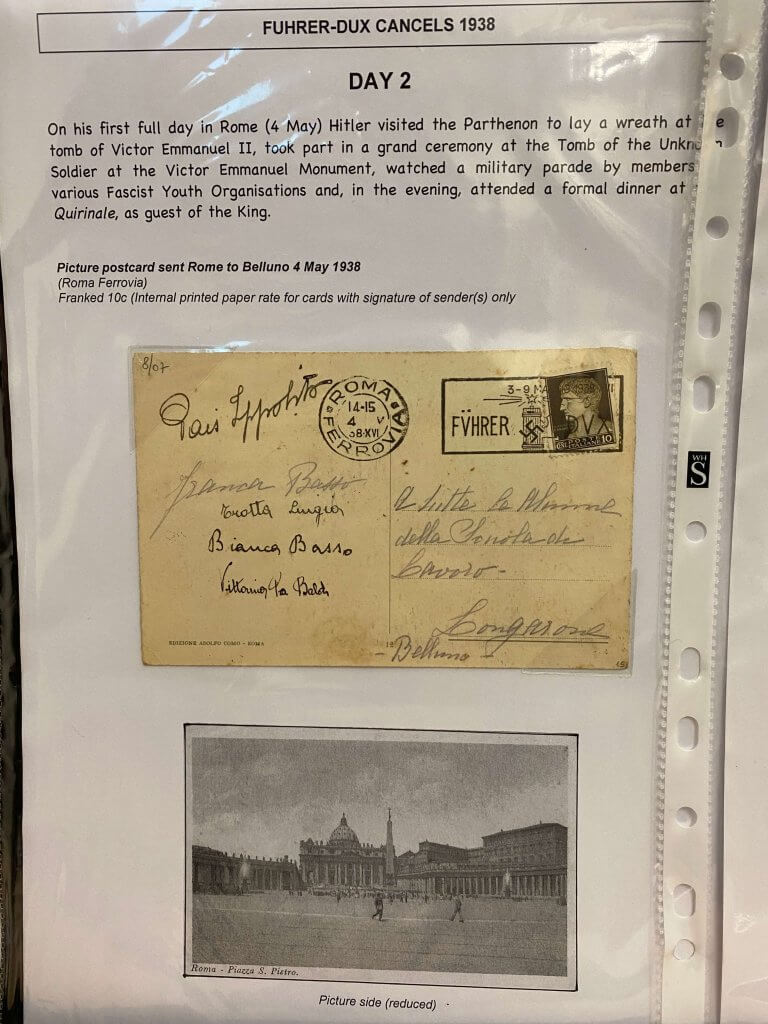 FUHRER-DUX CANCELS 1938
DAY 2
On his first full day in Rome (4 May) Hitler visited the Parthenon to lay a wreath at
tomb of Victor Emmanuel II, took part in a grand ceremony at the Tomb of the
Soldier at the Victor Emmanuel Monument, watched a military parade by members
various Fascist Youth Organisations and, in the evening, attended a formal dinner at
Quirinale, as guest of the King.
Picture postcard sent Rome to Belluno 4 May 1938
(Roma Ferrovia)
Franked 10c (Internal printed paper rate for cards with signature of sender(s) only
8/07
Pais Ippolito
ROMA
14-15
4 V
38·XVI
FERROVIA
3-9
FÜHRER
10
WH
S
Franca Basso
Trotta Luigia
Bianca Basso
A tutte le Alunne
della Scuola di
Lavoro -
Longarone
- Belluno -
EDIZIONE ADOLFO COMO - ROMA
Roma - Piazza S. Pietro.
Picture side (reduced)